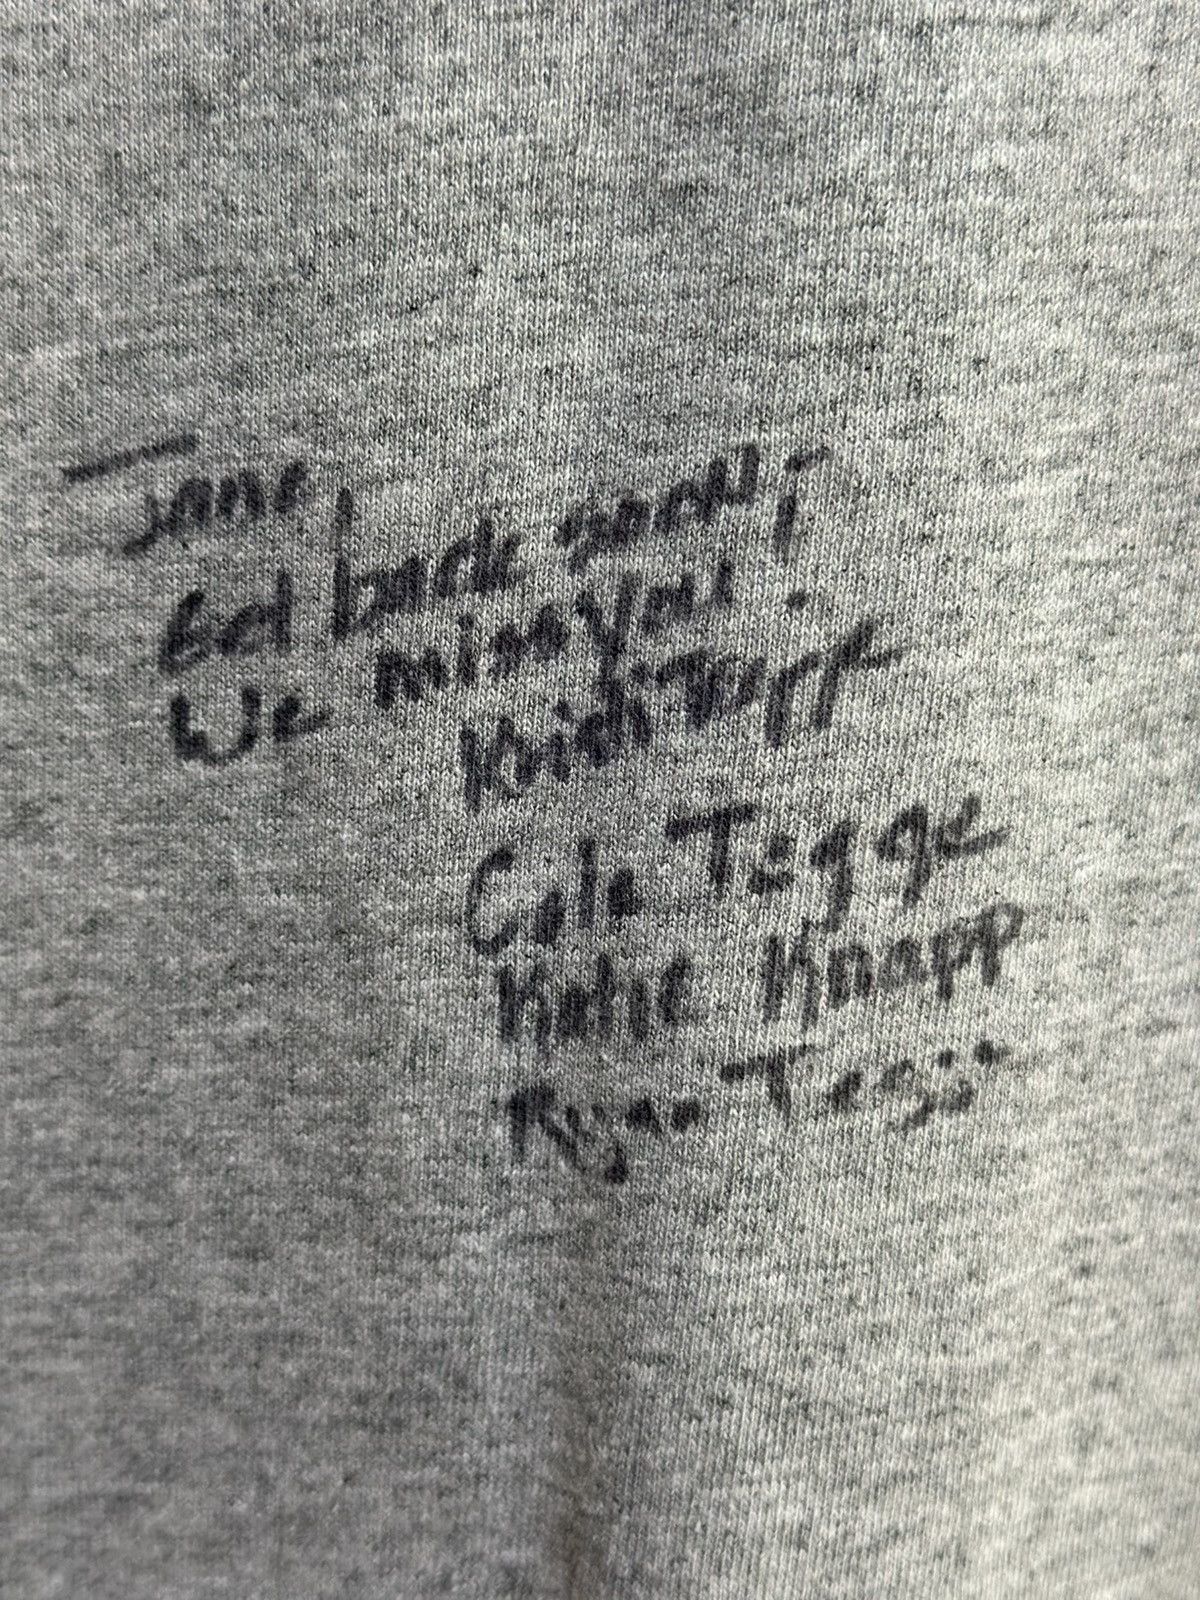 Jane,
Get back soon!
We miss you!
Kristi Tegge
Cole Tegge
Katie Knapp
Ryan Tegge